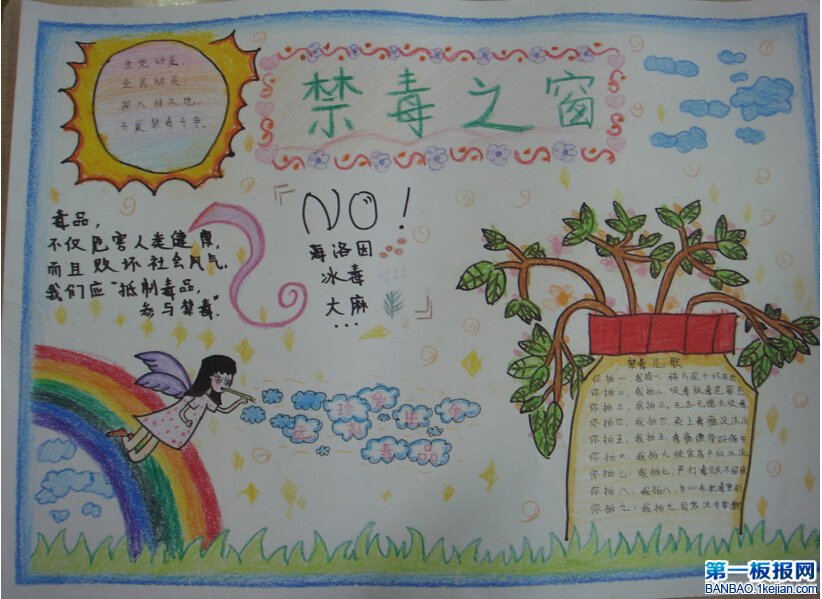 全党动员，
全民动员，
深入持久地，
开展禁毒斗争。
禁毒之窗
毒品，
不仅危害人类健康，
而且败坏社会风气，
我们应“抵制毒品，
参与禁毒”
『NO!
海洛因
冰毒
大麻
...』
珍爱生命
毒品
禁毒儿歌
你拍一，我拍一
你拍二，我拍二，吸毒贩毒是
你拍三，我拍三
你拍四，我拍四，染上毒瘾没法
你拍五，我拍五，毒瘾
你拍六，我拍六，倾家荡产
你拍七，我拍七，严打毒贩不留
你拍八，我拍八，齐心
你拍九，我拍九，国家法令
第一板报网
BANBAO.1kejian.com